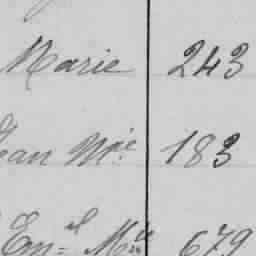 Marie 243
Jean M.ie 183
Em=el M.ie 679